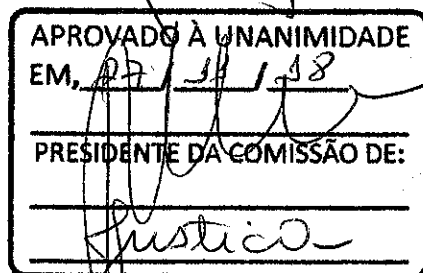 APROVADO À UNANIMIDADE
EM, 07 / 11 / 18
PRESIDENTE DA COMISSÃO DE:
Justiça